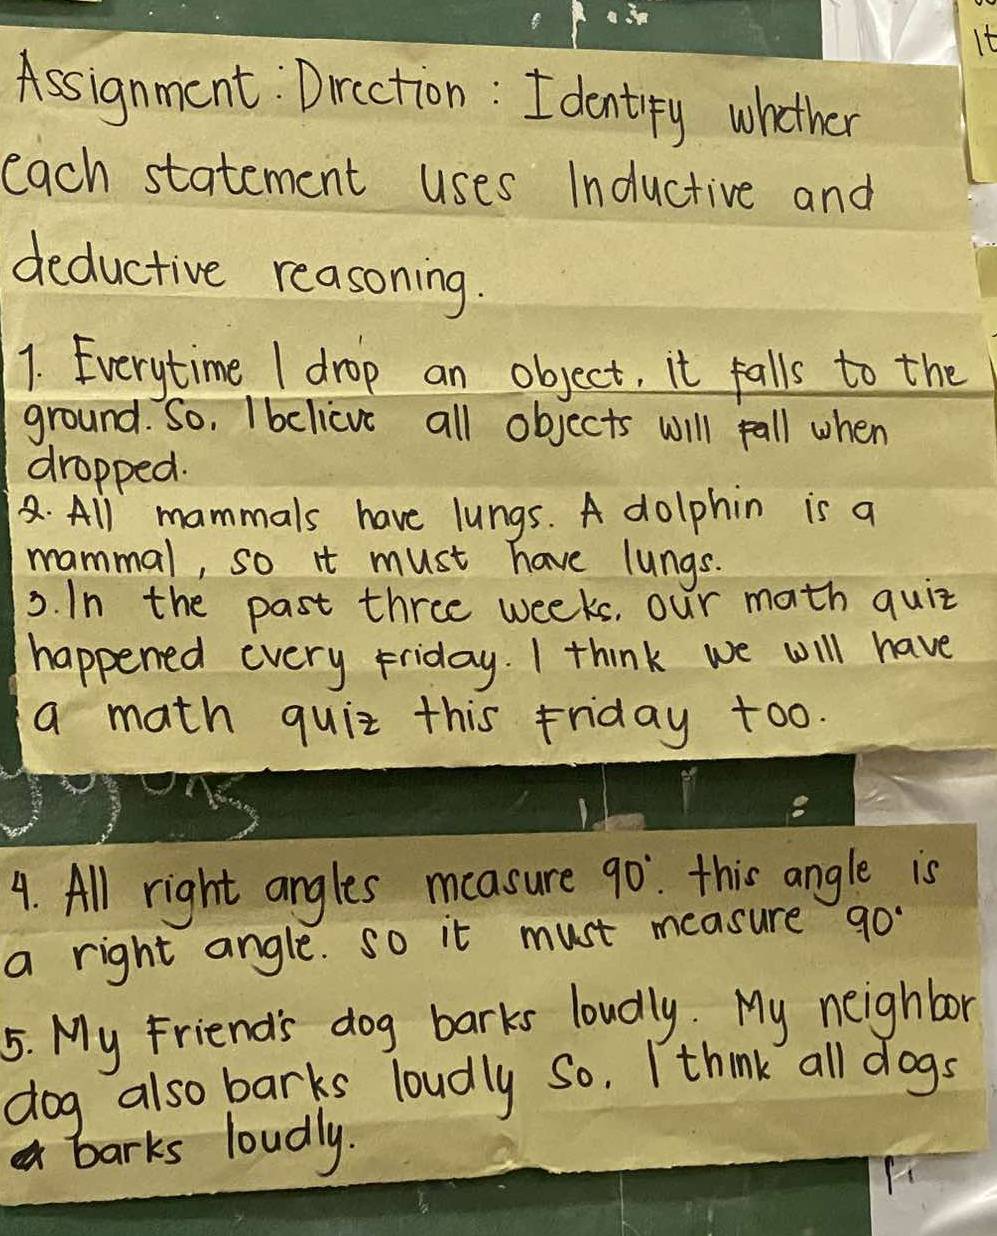 Assignment : Direction : Identify whether
each statement uses Inductive and
deductive reasoning.
1. Everytime I drop an object, it falls to the
ground. So, I believe all objects will fall when
dropped.
2. All mammals have lungs. A dolphin is a
mammal, so it must have lungs.
3. In the past three weeks, our math quiz
happened every Friday. I think we will have
a math quiz this Friday too.
4. All right angles measure 90°. this angle is
a right angle. so it must measure 90°
5. My Friend's dog barks loudly. My neighbor
dog also barks loudly So, I think all dogs
barks loudly.
It